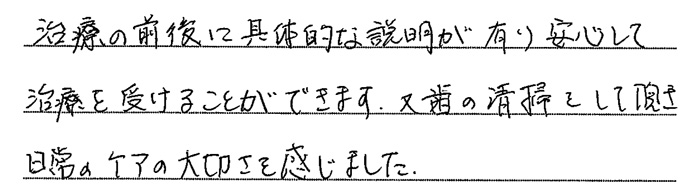 治療の前後に具体的な説明が有り安心して
治療を受けることができます.又歯の清掃をして頂き
日常のケアの大切さを感じました.